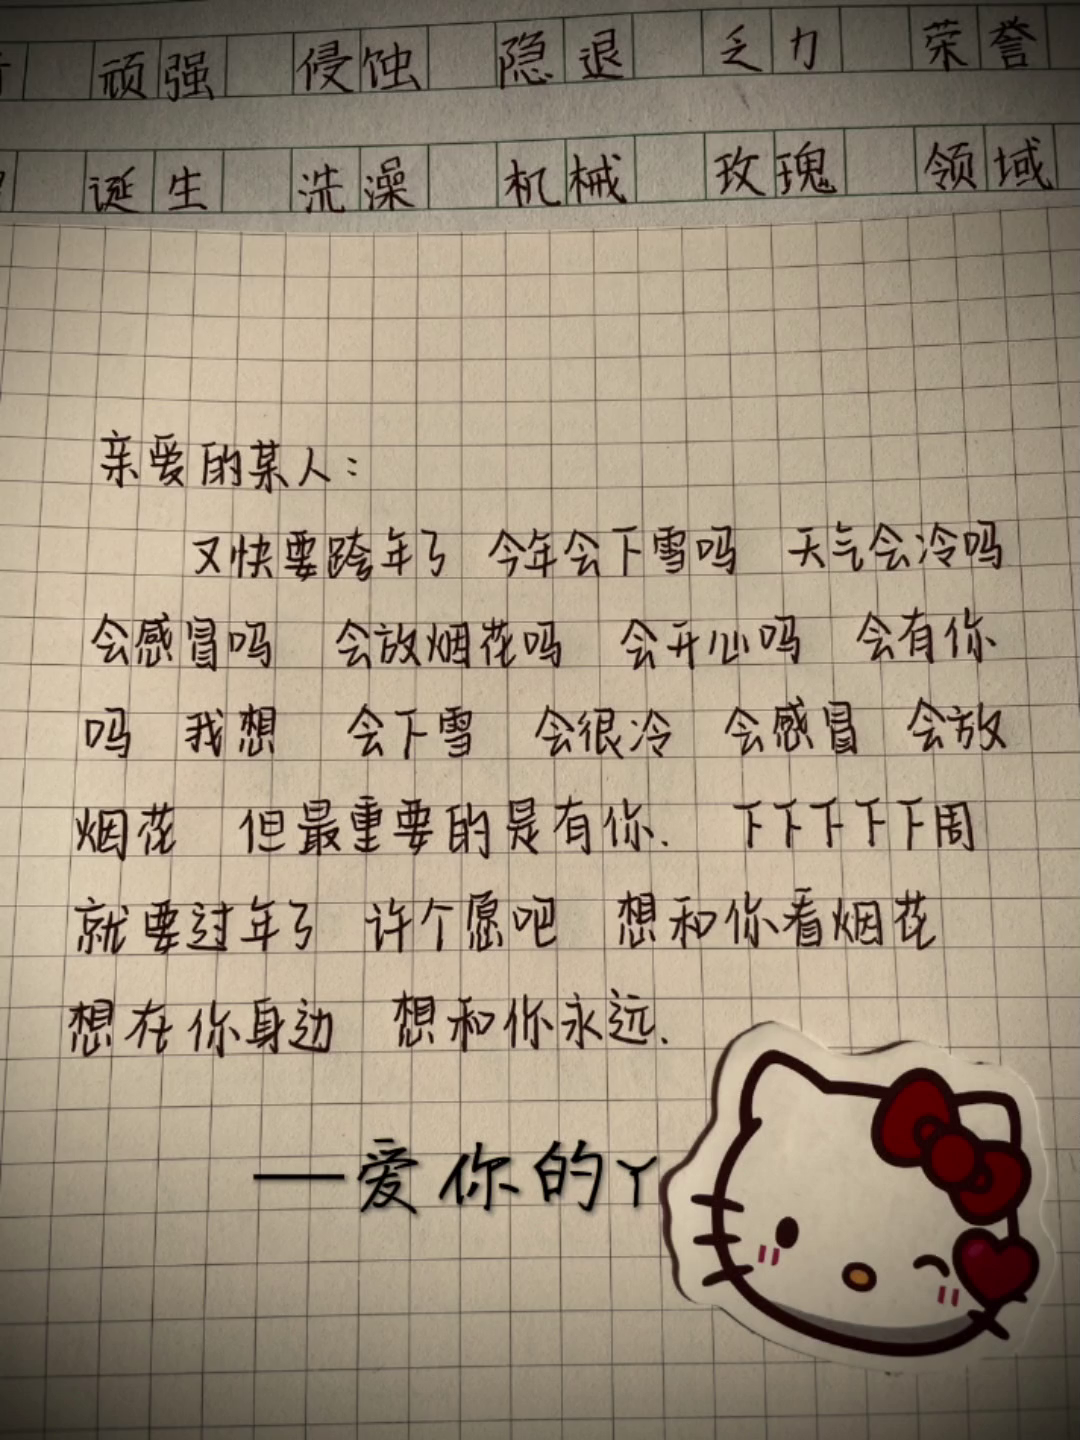 顽强 侵蚀 隐退 乏力 荣誉
诞生 洗澡 机械 玫瑰 领域
亲爱的某人:
又快要跨年了 今年会下雪吗 天气会冷吗
会感冒吗 会放烟花吗 会开心吗 会有你
吗 我想 会下雪 会很冷 会感冒 会放
烟花 但最重要的是有你. 下下下下下周
就要过年了 许个愿吧 想和你看烟花
想在你身边 想和你永远.
—爱你的Y